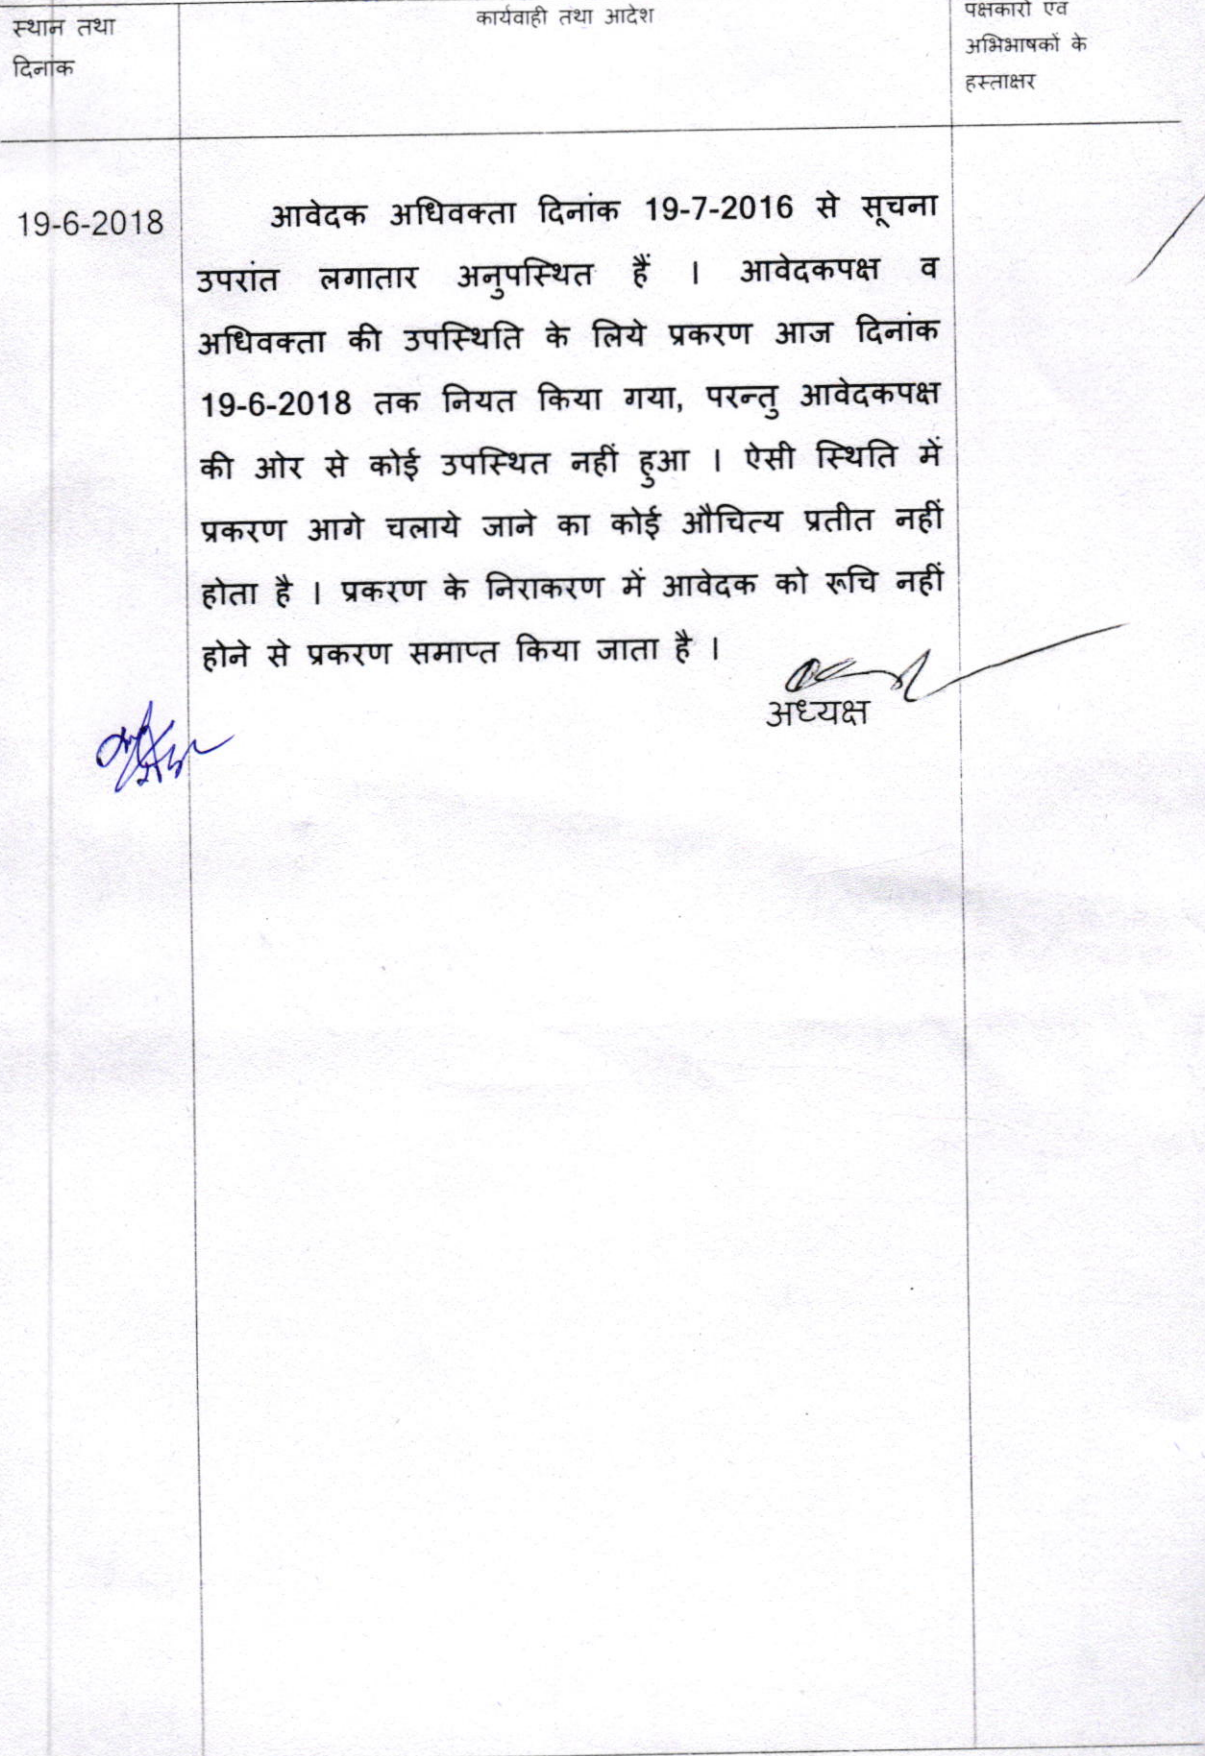 स्थान तथा
दिनांक
कार्यवाही तथा आदेश
पक्षकारों एवं
अभिभाषकों के
हस्ताक्षर
19-6-2018
आवेदक अधिवक्ता दिनांक 19-7-2016 से सूचना
उपरांत लगातार अनुपस्थित हैं । आवेदकपक्ष व
अधिवक्ता की उपस्थिति के लिये प्रकरण आज दिनांक
19-6-2018 तक नियत किया गया, परन्तु आवेदकपक्ष
की ओर से कोई उपस्थित नहीं हुआ । ऐसी स्थिति में
प्रकरण आगे चलाये जाने का कोई औचित्य प्रतीत नहीं
होता है । प्रकरण के निराकरण में आवेदक को रूचि नहीं
होने से प्रकरण समाप्त किया जाता है ।
अध्यक्ष